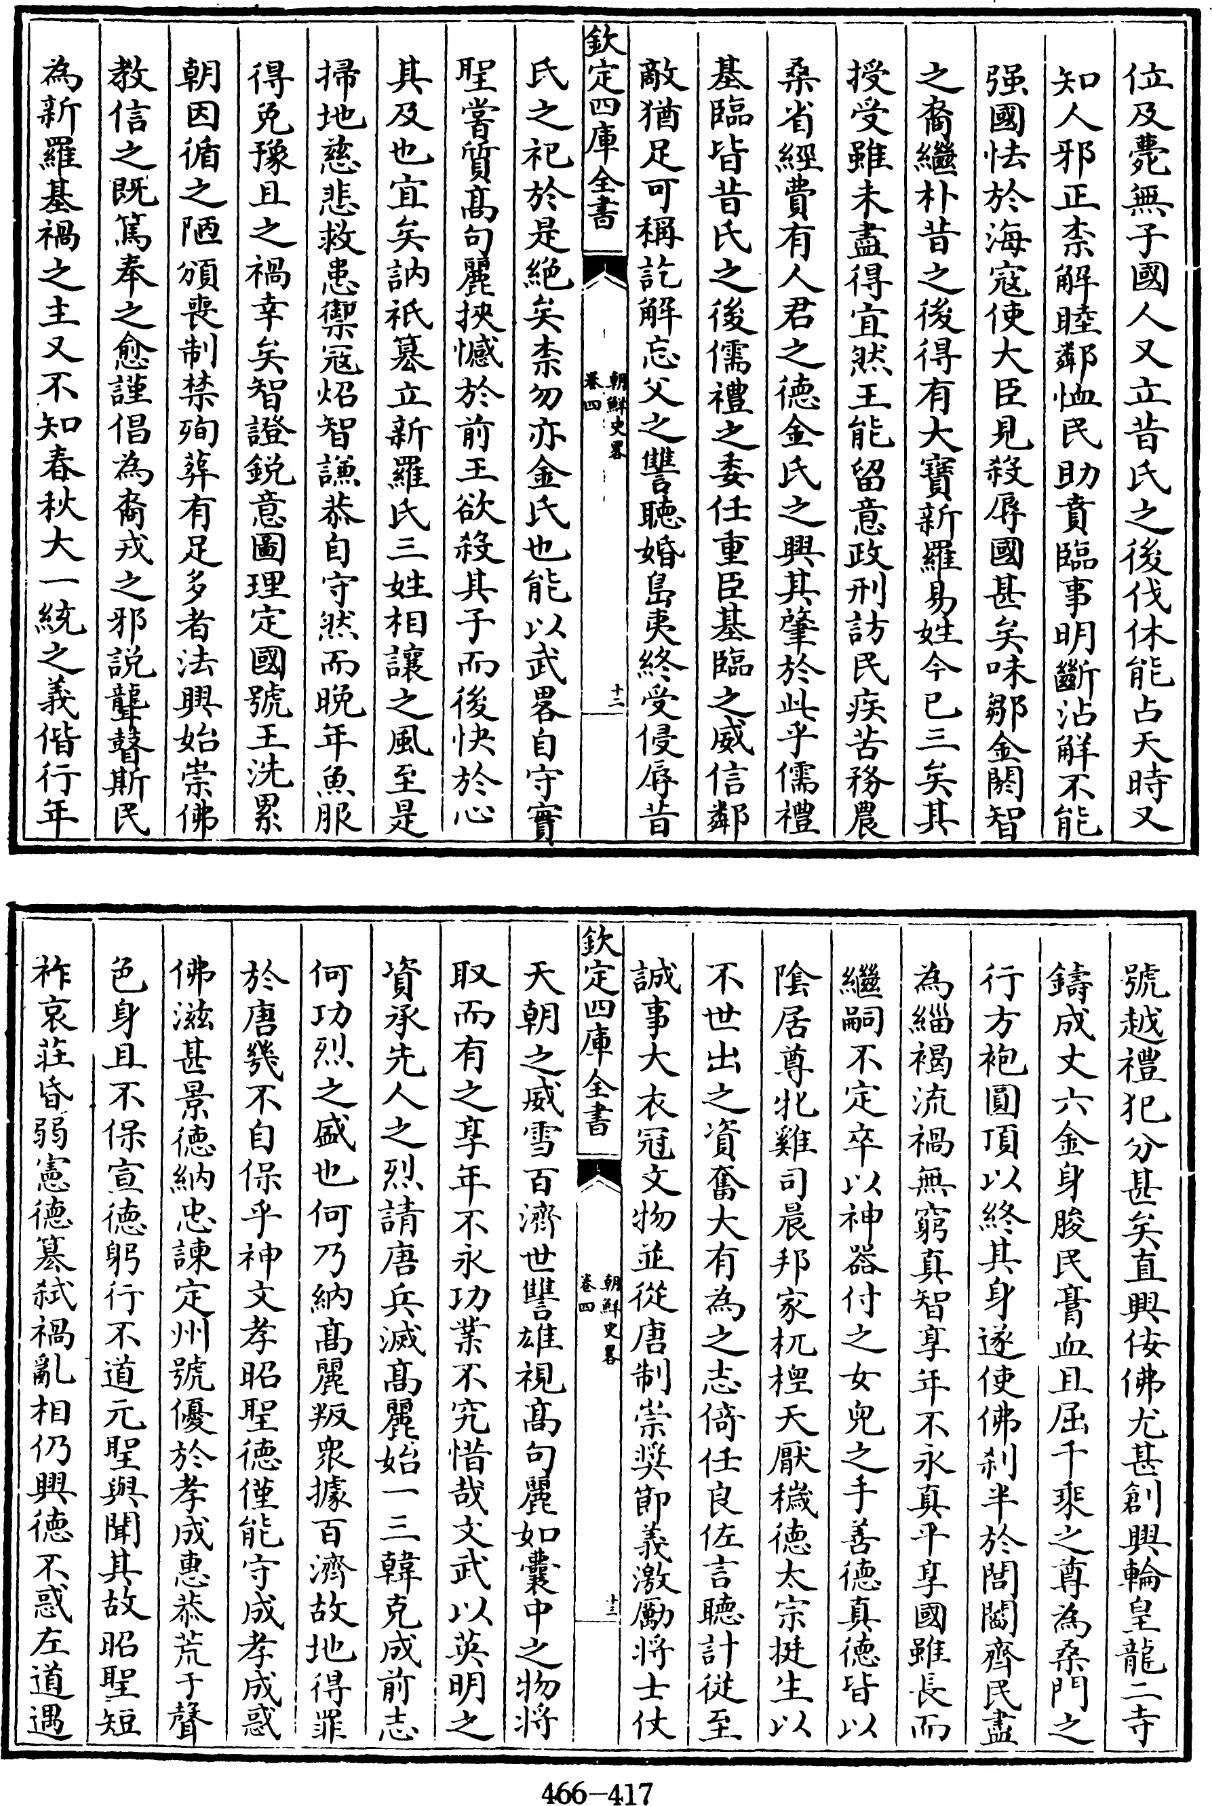 位及薨無子國人又立昔氏之後伐休能占天時又
知人邪正柰解睦鄰恤民助賁臨事明斷沾解不能
强國怯於海宼使大臣見殺辱國甚矣味鄒金閼智
之裔繼朴昔之後得有大寶新羅易姓今已三矣其
授受雖未盡得宜然王能留意政刑訪民疾苦務農
桑省經費有人君之德金氏之興其肇於此乎儒禮
基臨皆昔氏之後儒禮之委任重臣基臨之威信鄰
敵猶足可稱訖解忘父之讐聽婚島夷終受侵辱昔
欽定四庫全書
朝鮮史畧
卷四
十二
氏之祀於是絶矣柰勿亦金氏也能以武畧自守實
聖嘗質高句麗挾憾於前王欲殺其子而後快於心
其及也宜矣訥祇簒立新羅氏三姓相讓之風至是
掃地慈悲救患禦宼炤智謙恭自守然而晩年魚服
得免豫且之禍幸矣智證鋭意圖理定國號王洗累
朝因循之陋頒喪制禁殉葬有足多者法興始崇佛
教信之既篤奉之愈謹倡為裔戎之邪説聾瞽斯民
為新羅基禍之主又不知春秋大一統之義偕行年
號越禮犯分甚矣直興佞佛尤甚創興輪皇龍二寺
鑄成丈六金身朘民膏血且屈千乘之尊為桑門之
行方袍圓頂以終其身遂使佛刹半於閭閻齊民盡
為緇褐流禍無窮真智享年不永真平享國雖長而
繼嗣不定卒以神器付之女兒之手善德真德皆以
陰居尊牝雞司晨邦家杌楻天厭穢德太宗挺生以
不世出之資奮大有為之志倚任良佐言聽計從至
誠事大衣冠文物並從唐制崇奬節義激勵將士仗
欽定四庫全書
朝鮮史畧
卷四
十三
天朝之威雪百濟世讐雄視高句麗如囊中之物將
取而有之享年不永功業不究惜哉文武以英明之
資承先人之烈請唐兵滅高麗始一三韓克成前志
何功烈之盛也何乃納高麗叛衆據百濟故地得罪
於唐幾不自保乎神文孝昭聖德僅能守成孝成惑
佛滋甚景德納忠諫定州號優於孝成惠恭荒于聲
色身且不保宣德躬行不道元聖與聞其故昭聖短
祚哀莊昏弱憲德簒弑禍亂相仍興德不惑左道遇
466-417